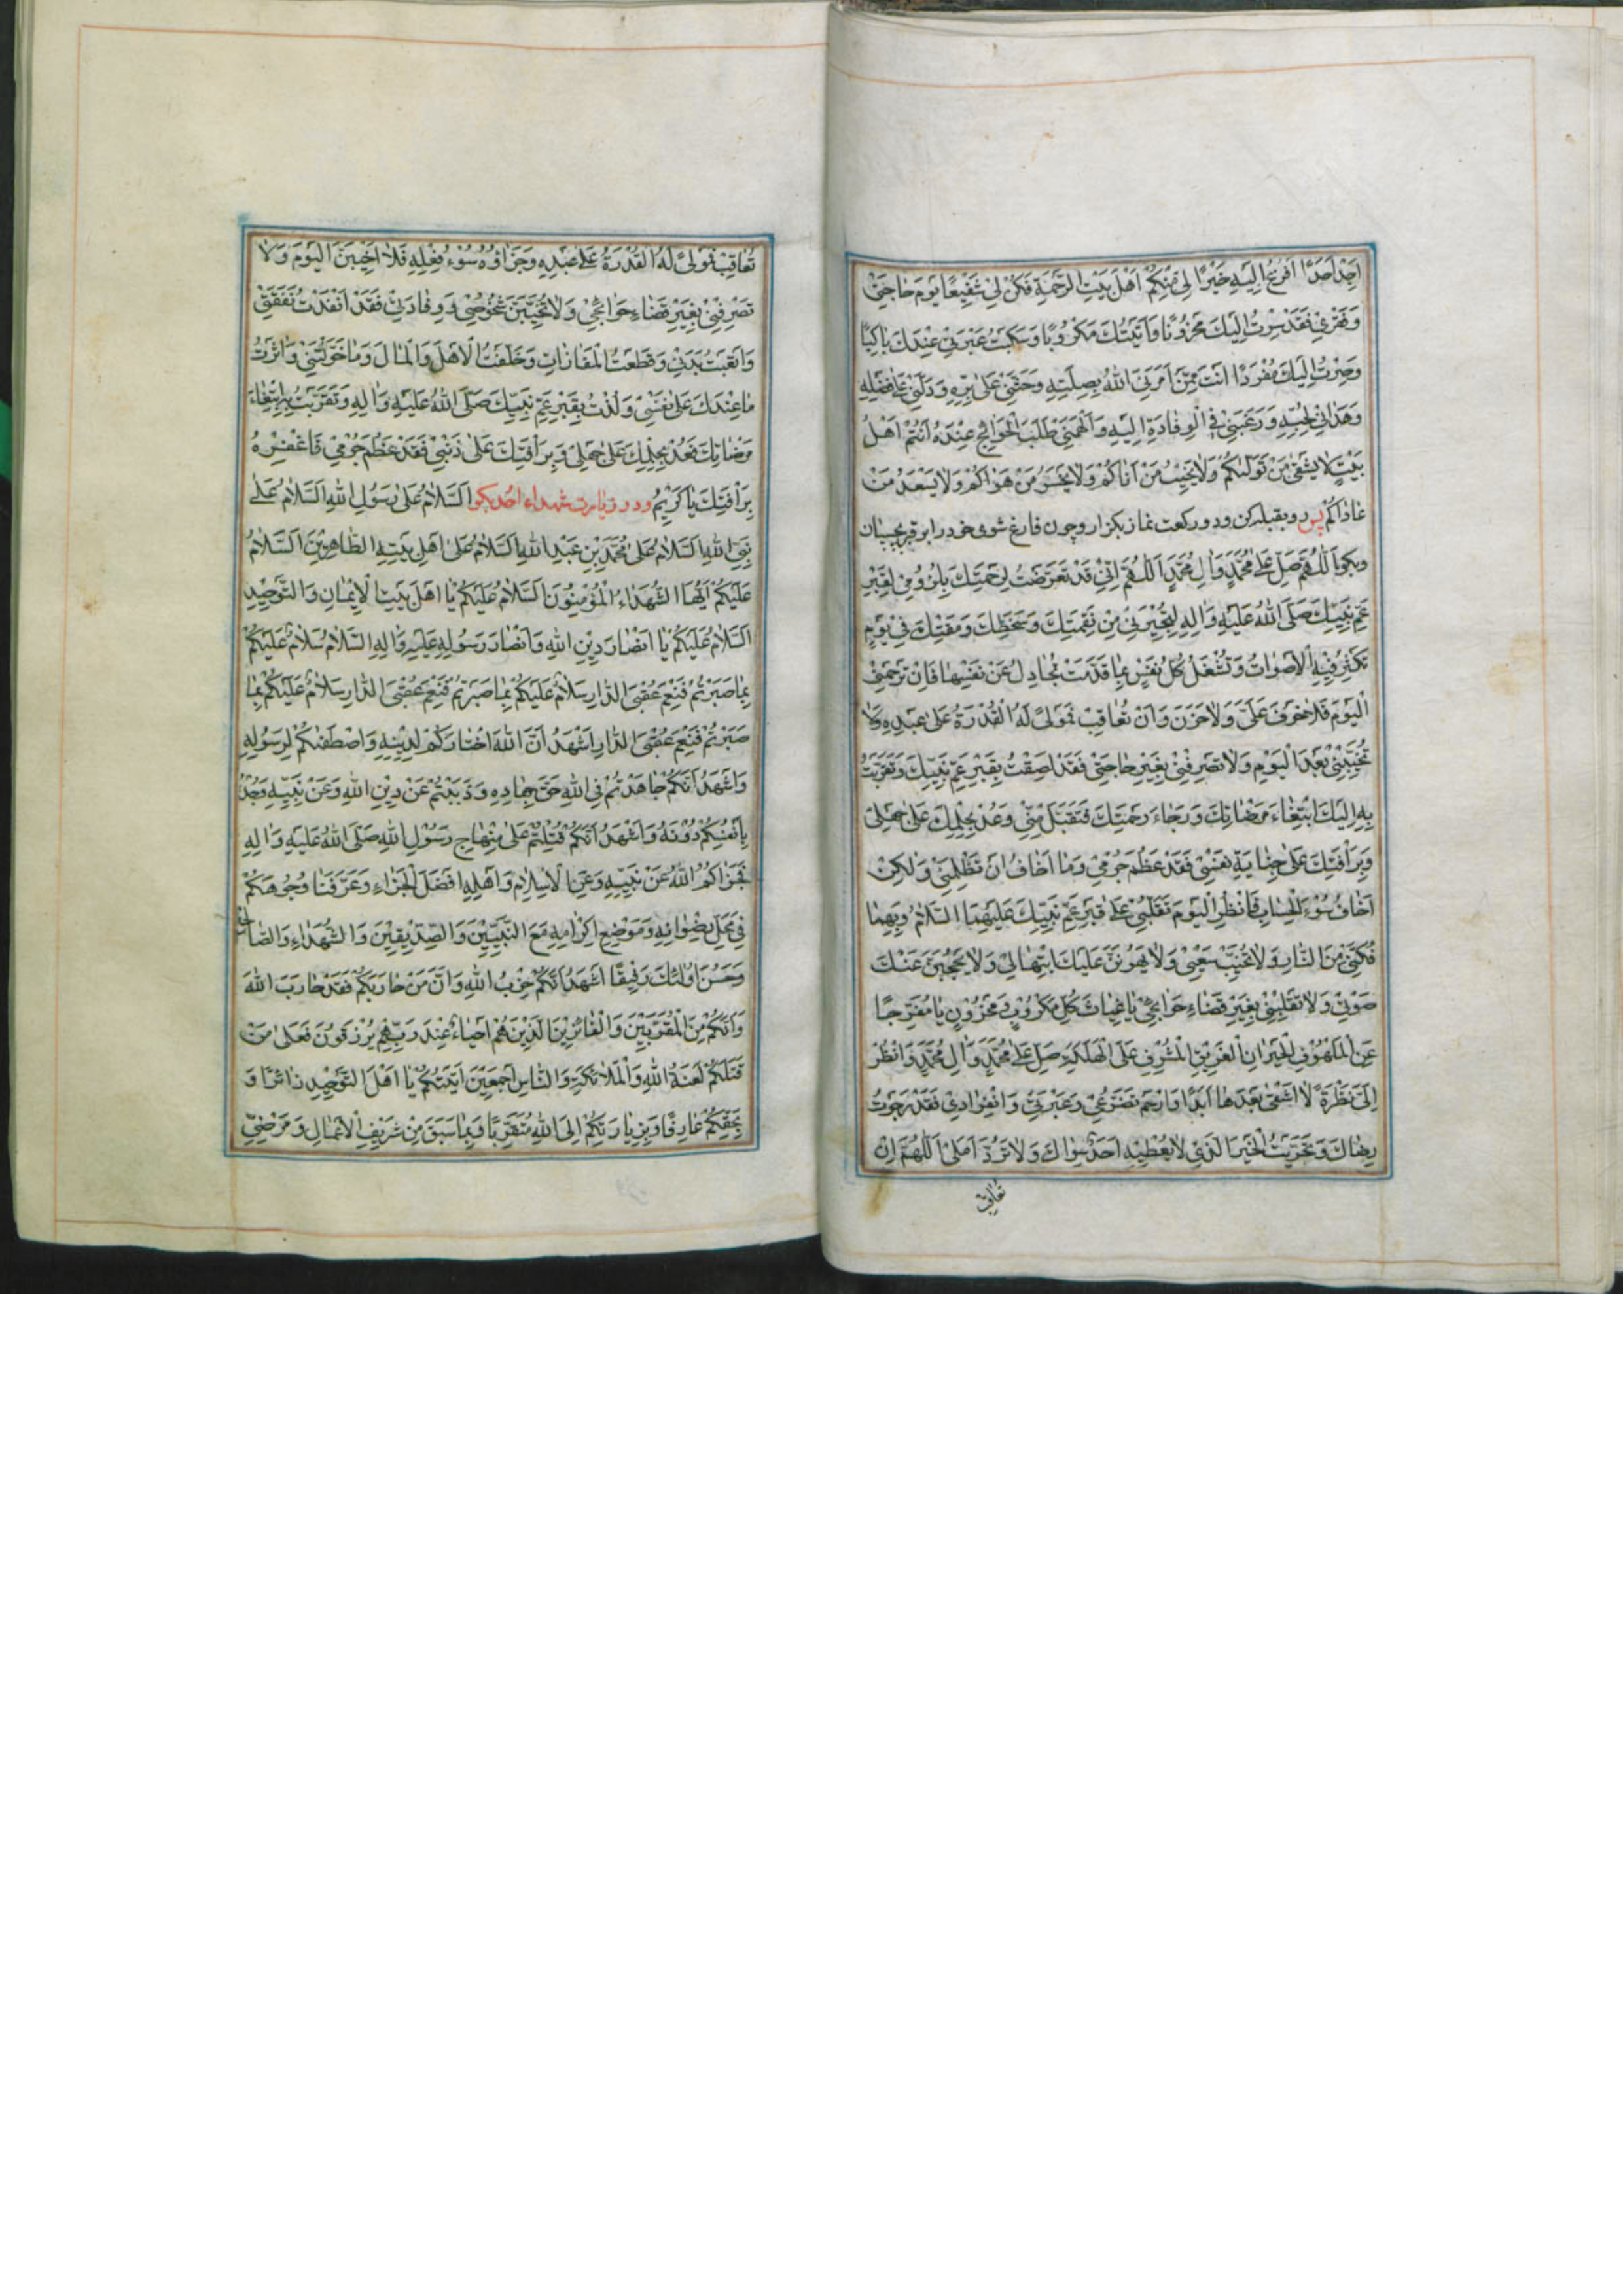 اَجِدُ اَحَدًا اَفْزَعُ اِلَيْهِ خَيْرًا لِي مِنْكُمْ اَهْلَ بَيْتِ الرَّحْمَةِ فَكُنْ لِي شَفِيْعًا يَوْمَ حَاجَتِي
وَفَقْرِي فَقَدْ سِرْتُ اِلَيْكَ مَحْزُونًا وَاَتَيْتُكَ مَكْرُوبًا وَسَكَبْتُ عَبْرَتِي عِنْدَكَ بَاكِيًا
وَصِرْتُ اِلَيْكَ مُفْرَدًا اَنْتَ مِمَّنْ اَمَرَنِيَ اللّٰهُ بِصِلَتِهِ وَحَثَّنِي عَلٰى بِرِّهِ وَدَلَّنِي عَلٰى فَضْلِهِ
وَهَدَانِي لِحُبِّهِ وَرَغَّبَنِي فِي الْوِفَادَةِ اِلَيْهِ وَاَلْهَمَنِي طَلَبَ الْحَوَائِجِ عِنْدَهُ اَنْتُمْ اَهْلُ
بَيْتٍ لَا يَشْقٰى مَنْ تَوَلَّاكُمْ وَلَا يَخِيْبُ مَنْ اَتَاكُمْ وَلَا يَخْسَرُ مَنْ هَوَاكُمْ وَلَا يَسْعَدُ مَنْ
عَادَاكُمْ پس رو بقبله کن ودو رکعت نماز بکزار وچون فارغ شوی خود را بر قبر بچسپان
وبکو اَللّٰهُمَّ صَلِّ عَلٰى مُحَمَّدٍ وَاٰلِ مُحَمَّدٍ اَللّٰهُمَّ اِنِّي قَدْ تَعَرَّضْتُ لِرَحْمَتِكَ بِلُزُومِي لِقَبْرِ
عَمِّ نَبِيِّكَ صَلَّى اللّٰهُ عَلَيْهِ وَاٰلِهِ لِتُجِيْرَنِي مِنْ نِقْمَتِكَ وَسَخَطِكَ وَمَقْتِكَ فِي يَوْمٍ
تَكْثُرُ فِيْهِ الْاَصْوَاتُ وَتَشْغَلُ كُلُّ نَفْسٍ بِمَا قَدَّمَتْ تُجَادِلُ عَنْ نَفْسِهَا فَاِنْ تَرْحَمْنِي
الْيَوْمَ فَلَا خَوْفَ عَلَيَّ وَلَا حَزَنَ وَاِنْ تُعَاقِبْ فَمَوْلًى لَهُ الْقُدْرَةُ عَلٰى عَبْدِهِ وَلَا
تُخَيِّبْنِي بَعْدَ الْيَوْمِ وَلَا تَصْرِفْنِي بِغَيْرِ حَاجَتِي فَقَدْ لَصِقْتُ بِقَبْرِ عَمِّ نَبِيِّكَ وَتَقَرَّبْتُ
بِهِ اِلَيْكَ ابْتِغَاءَ مَرْضَاتِكَ وَرَجَاءَ رَحْمَتِكَ فَتَقَبَّلْ مِنِّي وَعُدْ بِحِلْمِكَ عَلٰى جَهْلِي
وَبِرَأْفَتِكَ عَلٰى جِنَايَةِ نَفْسِي فَقَدْ عَظُمَ جُرْمِي وَمَا اَخَافُ اَنْ تَظْلِمَنِي وَلٰكِنْ
اَخَافُ سُوْءَ الْحِسَابِ فَانْظُرِ الْيَوْمَ تَقَلُّبِي عَلٰى قَبْرِ عَمِّ نَبِيِّكَ عَلَيْهِمَا السَّلَامُ وَبِهِمَا
فُكَّنِي مِنَ النَّارِ وَلَا تُخَيِّبْ سَعْيِي وَلَا يَهُونَنَّ عَلَيْكَ ابْتِهَالِي وَلَا يُحْجَبَنَّ عَنْكَ
صَوْتِي وَلَا تَقْلِبْنِي بِغَيْرِ قَضَاءِ حَوَائِجِي يَا غِيَاثَ كُلِّ مَكْرُوبٍ وَمَحْزُونٍ يَا مُفَرِّجًا
عَنِ الْمَلْهُوفِ الْحَيْرَانِ الْغَرِيْقِ الْمُشْرِفِ عَلَى الْهَلَكَةِ صَلِّ عَلٰى مُحَمَّدٍ وَاٰلِ مُحَمَّدٍ وَانْظُرْ
اِلَيَّ نَظْرَةً لَا اَشْقٰى بَعْدَهَا اَبَدًا وَارْحَمْ تَضَرُّعِي وَعَبْرَتِي وَانْفِرَادِي فَقَدْ رَجَوْتُ
رِضَاكَ وَتَحَرَّيْتُ الْخَيْرَ الَّذِي لَا يُعْطِيْهِ اَحَدٌ سِوَاكَ وَلَا تَرُدَّ اَمَلِي اَللّٰهُمَّ اِنْ
تُعَاقِبْ
تُعَاقِبْ فَمَوْلًى لَهُ الْقُدْرَةُ عَلٰى عَبْدِهِ وَجَزَاؤُهُ سُوْءُ فِعْلِهِ فَلَا اَخِيْبَنَّ الْيَوْمَ وَلَا
تَصْرِفْنِي بِغَيْرِ قَضَاءِ حَوَائِجِي وَلَا تُخَيِّبَنَّ شُخُوصِي وَوِفَادَتِي فَقَدْ اَنْفَدْتُ نَفَقَتِي
وَاَتْعَبْتُ بَدَنِي وَقَطَعْتُ الْمَفَازَاتِ وَخَلَّفْتُ الْاَهْلَ وَالْمَالَ وَمَا خَوَّلْتَنِي وَاٰثَرْتُ
مَا عِنْدَكَ عَلٰى نَفْسِي وَلُذْتُ بِقَبْرِ عَمِّ نَبِيِّكَ صَلَّى اللّٰهُ عَلَيْهِ وَاٰلِهِ وَتَقَرَّبْتُ بِهِ ابْتِغَاءَ
مَرْضَاتِكَ فَعُدْ بِحِلْمِكَ عَلٰى جَهْلِي وَبِرَأْفَتِكَ عَلٰى ذَنْبِي فَقَدْ عَظُمَ جُرْمِي فَاغْفِرْهُ
بِرَأْفَتِكَ يَا كَرِيْمُ ودر زیارت شهداء احد بکو اَلسَّلَامُ عَلٰى رَسُوْلِ اللّٰهِ اَلسَّلَامُ عَلٰى
نَبِيِّ اللّٰهِ اَلسَّلَامُ عَلٰى مُحَمَّدِ بْنِ عَبْدِ اللّٰهِ اَلسَّلَامُ عَلٰى اَهْلِ بَيْتِهِ الطَّاهِرِيْنَ اَلسَّلَامُ
عَلَيْكُمْ اَيُّهَا الشُّهَدَاءُ الْمُؤْمِنُوْنَ اَلسَّلَامُ عَلَيْكُمْ يَا اَهْلَ بَيْتِ الْاِيْمَانِ وَالتَّوْحِيْدِ
اَلسَّلَامُ عَلَيْكُمْ يَا اَنْصَارَ دِيْنِ اللّٰهِ وَاَنْصَارَ رَسُوْلِهِ عَلَيْهِ وَاٰلِهِ السَّلَامُ سَلَامٌ عَلَيْكُمْ
بِمَا صَبَرْتُمْ فَنِعْمَ عُقْبَى الدَّارِ سَلَامٌ عَلَيْكُمْ بِمَا صَبَرْتُمْ فَنِعْمَ عُقْبَى الدَّارِ سَلَامٌ عَلَيْكُمْ بِمَا
صَبَرْتُمْ فَنِعْمَ عُقْبَى الدَّارِ اَشْهَدُ اَنَّ اللّٰهَ اخْتَارَكُمْ لِدِيْنِهِ وَاصْطَفٰكُمْ لِرَسُوْلِهِ
وَاَشْهَدُ اَنَّكُمْ جَاهَدْتُمْ فِي اللّٰهِ حَقَّ جِهَادِهِ وَذَبَبْتُمْ عَنْ دِيْنِ اللّٰهِ وَعَنْ نَبِيِّهِ وَجُدْتُمْ
بِاَنْفُسِكُمْ دُوْنَهُ وَاَشْهَدُ اَنَّكُمْ قُتِلْتُمْ عَلٰى مِنْهَاجِ رَسُوْلِ اللّٰهِ صَلَّى اللّٰهُ عَلَيْهِ وَاٰلِهِ
فَجَزَاكُمُ اللّٰهُ عَنْ نَبِيِّهِ وَعَنِ الْاِسْلَامِ وَاَهْلِهِ اَفْضَلَ الْجَزَاءِ وَعَرَّفَنَا وُجُوْهَكُمْ
فِي مَحَلِّ رِضْوَانِهِ وَمَوْضِعِ اِكْرَامِهِ مَعَ النَّبِيِّيْنَ وَالصِّدِّيْقِيْنَ وَالشُّهَدَاءِ وَالصَّالِحِيْنَ
وَحَسُنَ اُولٰئِكَ رَفِيْقًا اَشْهَدُ اَنَّكُمْ حِزْبُ اللّٰهِ وَاَنَّ مَنْ حَارَبَكُمْ فَقَدْ حَارَبَ اللّٰهَ
وَاَنَّكُمْ مِنَ الْمُقَرَّبِيْنَ وَالْفَائِزِيْنَ الَّذِيْنَ هُمْ اَحْيَاءٌ عِنْدَ رَبِّهِمْ يُرْزَقُوْنَ فَعَلٰى مَنْ
قَتَلَكُمْ لَعْنَةُ اللّٰهِ وَالْمَلَائِكَةِ وَالنَّاسِ اَجْمَعِيْنَ اَتَيْتُكُمْ يَا اَهْلَ التَّوْحِيْدِ زَائِرًا وَ
بِحَقِّكُمْ عَارِفًا وَبِزِيَارَتِكُمْ اِلَى اللّٰهِ مُتَقَرِّبًا وَبِمَا سَبَقَ مِنْ شَرِيْفِ الْاَعْمَالِ وَمَرْضِيِّ